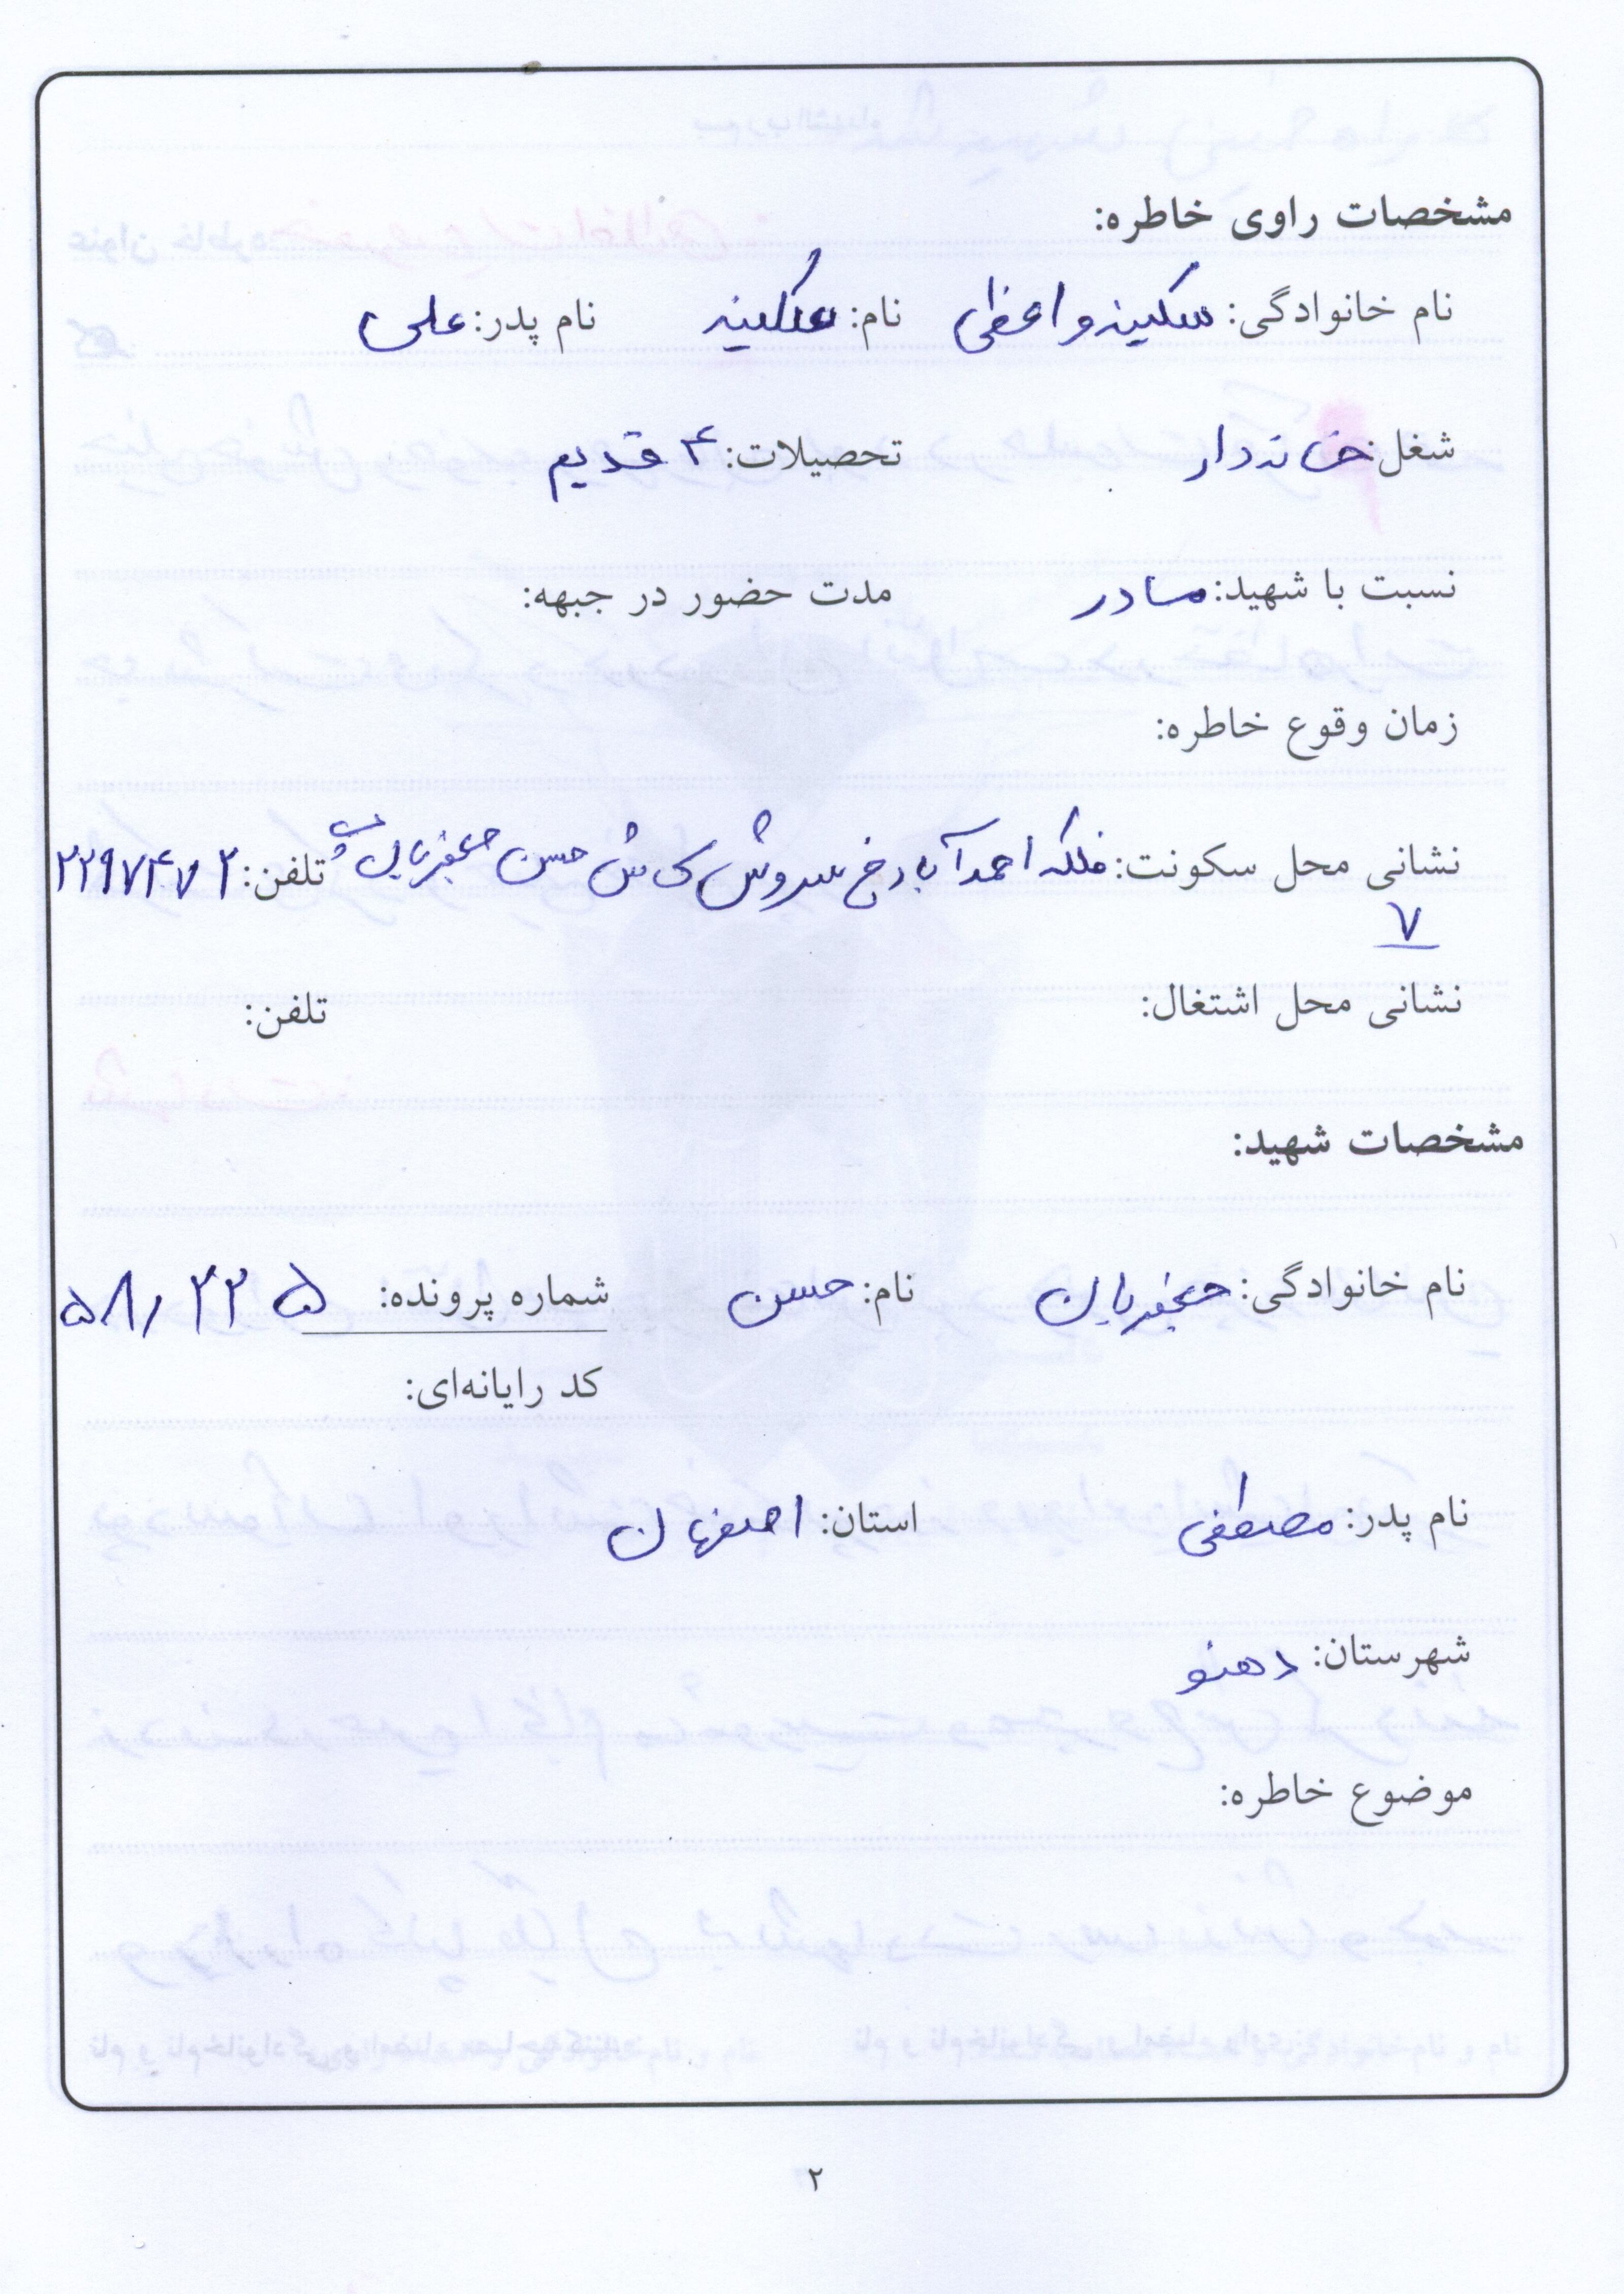 مشخصات راوی خاطره:
نام خانوادگی: سکینه واعظی نام: سکینه نام پدر: علی
شغل خانه دار تحصیلات: ۴ قدیم
نسبت با شهید: مادر مدت حضور در جبهه:
زمان وقوع خاطره:
نشانی محل سکونت: فلکه احمدآباد خ سروش ک ش حسن جعفریان پ تلفن: ۲۲۹۷۴۷۲
۷
نشانی محل اشتغال: تلفن:
مشخصات شهید:
نام خانوادگی: جعفریان نام: حسن شماره پرونده: ۵۸/۲۲۵
کد رایانه‌ای:
نام پدر: مصطفی استان: اصفهان
شهرستان: دهنو
موضوع خاطره:
۲